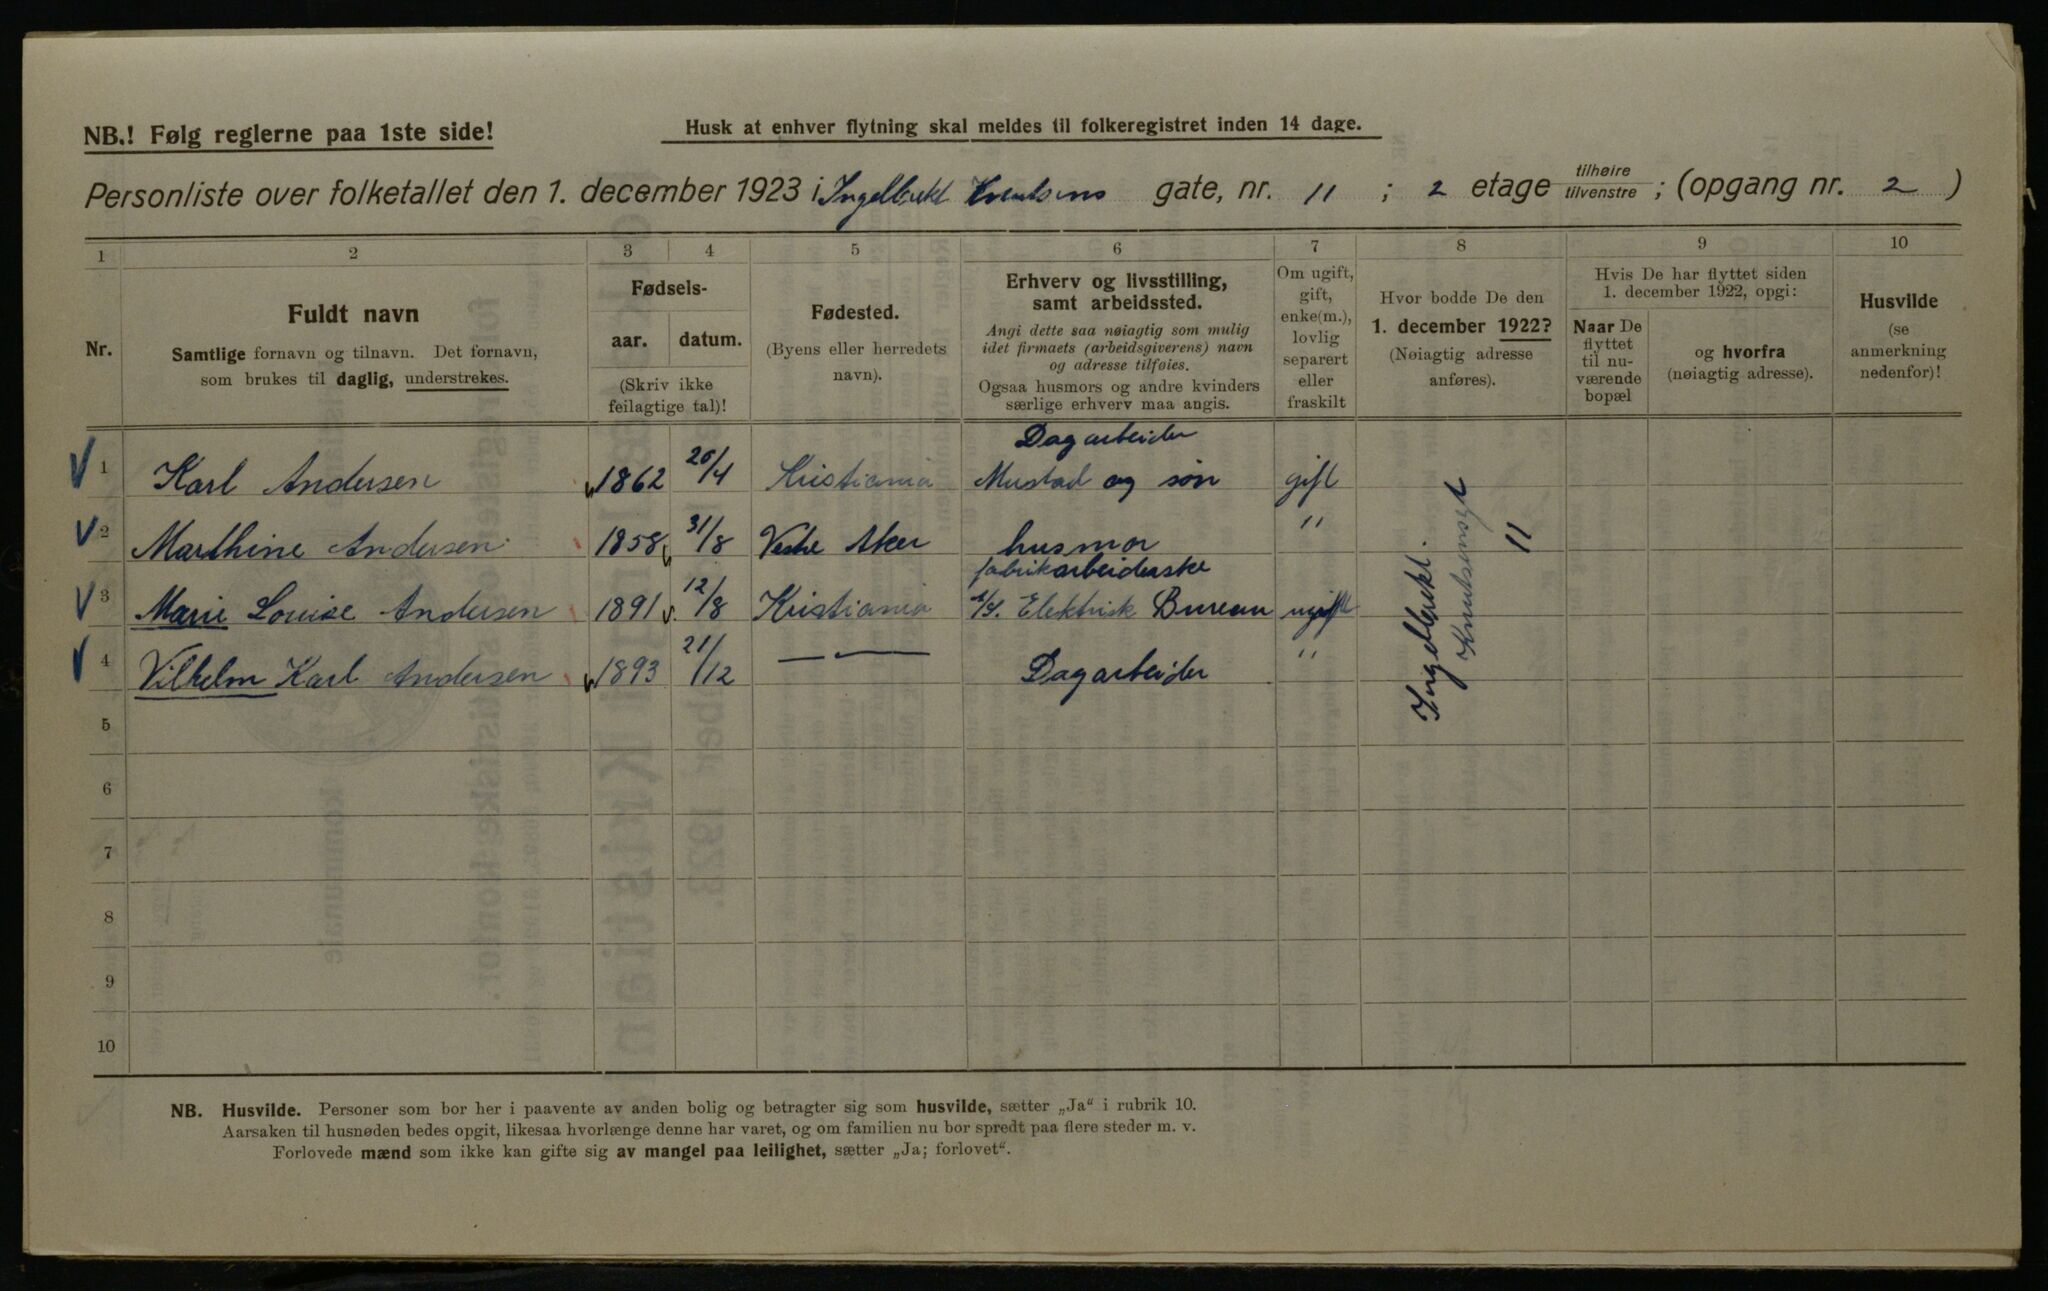 NB.! Følg reglerne paa 1ste side!
Husk at enhver flytning skal meldes til folkeregistret inden 14 dage.
Personliste over folketallet den 1. december 1923 i Ingelbrekt Knutsens gate, nr. 11 ; 2 etage tilhøire tilvenstre ; (opgang nr. 2 )
1 2 3 4 5 6 7 8 9 10
Nr.
Fuldt navn
Samtlige fornavn og tilnavn. Det fornavn,
som brukes til daglig, understrekes.
Fødsels-
aar. datum.
(Skriv ikke
feilagtige tal)!
Fødested.
(Byens eller herredets
navn).
Erhverv og livsstilling,
samt arbeidssted.
Angi dette saa nøiagtig som mulig
idet firmaets (arbeidsgiverens) navn
og adresse tilføies.
Ogsaa husmors og andre kvinders
særlige erhverv maa angis.
Om ugift,
gift,
enke(m.),
lovlig
separert
eller
fraskilt
Hvor bodde De den
1. december 1922?
(Nøiagtig adresse
anføres).
Hvis De har flyttet siden
1. december 1922, opgi:
Naar De
flyttet
til nu-
værende
bopæl
og hvorfra
(nøiagtig adresse).
Husvilde
(se
anmerkning
nedenfor)!
Dagarbeider
1 Karl Andersen 1862 20/4 Kristiania Mustad og søn gift
2 Marthine Andersen 1858 31/8 Vestre Aker husmor "
fabrikarbeiderske
3 Marie Louise Andersen 1891 12/8 Kristiania Elektrisk Bureau ugift
4 Vilhelm Karl Andersen 1893 21/12 — — Dagarbeider "
Ingelbrekt
Knutsensgt
11
5
6
7
8
9
10
NB. Husvilde. Personer som bor her i paavente av anden bolig og betragter sig som husvilde, sætter „Ja“ i rubrik 10.
Aarsaken til husnøden bedes opgit, likesaa hvorlænge denne har varet, og om familien nu bor spredt paa flere steder m. v.
Forlovede mænd som ikke kan gifte sig av mangel paa leilighet, sætter „Ja; forlovet“.